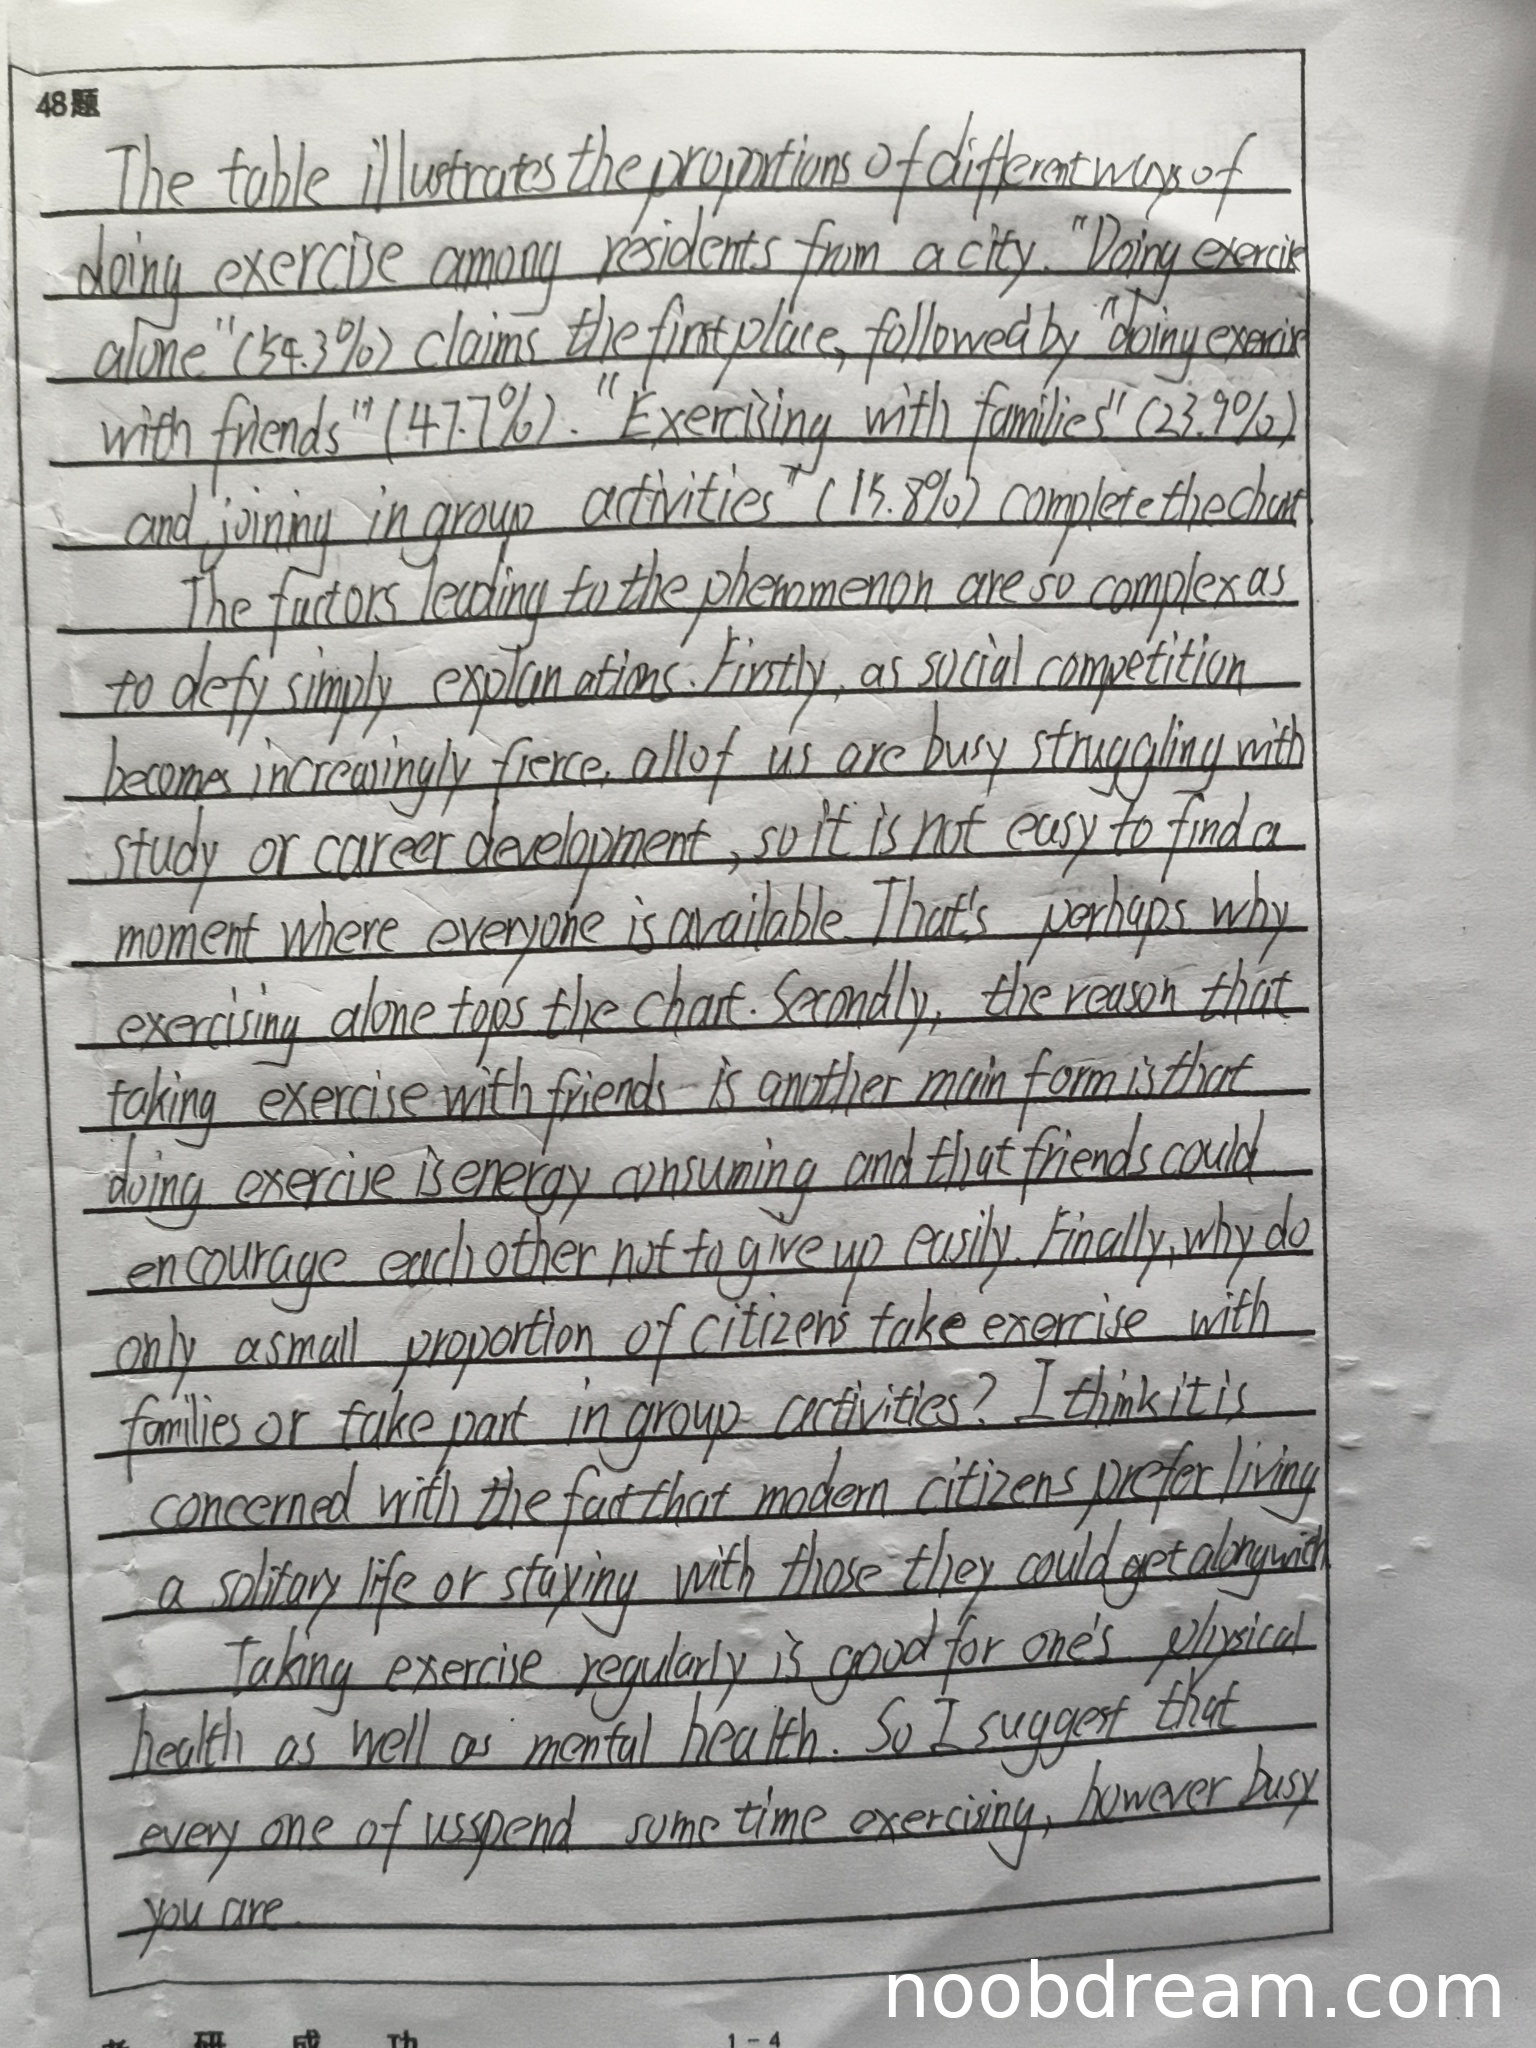 48题
The table illustrates the proportions of different ways of
doing exercise among residents from a city. "Doing exercise
alone" (54.3%) claims the first place, followed by "doing exercise
with friends" (47.7%). "Exercising with families" (23.9%)
and joining in group activities" (15.8%) complete the chart.
The factors leading to the phenomenon are so complex as
to defy simply explanations. Firstly, as social competition
becomes increasingly fierce, all of us are busy struggling with
study or career development, so it is not easy to find a
moment where everyone is available. That's perhaps why
exercising alone tops the chart. Secondly, the reason that
taking exercise with friends is another main form is that
doing exercise is energy consuming and that friends could
encourage each other not to give up easily. Finally, why do
only a small proportion of citizens take exercise with
families or take part in group activities? I think it is
concerned with the fact that modern citizens prefer living
a solitary life or staying with those they could get along with
Taking exercise regularly is good for one's physical
health as well as mental health. So I suggest that
every one of us spend some time exercising, however busy
you are.
考 研 成 功
1-4
noobdream.com